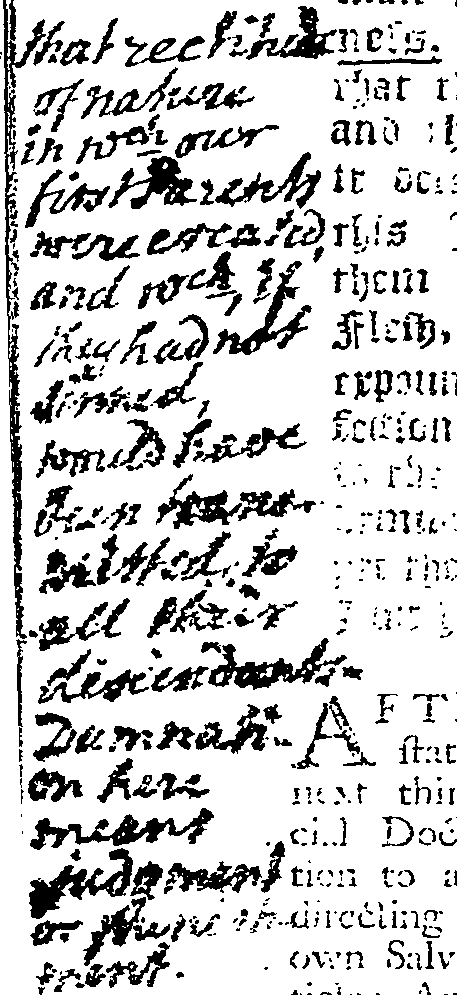 that rectitude
of nature
in wch our
first Parents
were created,
and wch, if
they had not
sinned,
would have
been trans-
mitted, to
all their
descendants.
Damnati-
on here
means
judgment
or punish-
ment.
ness.
that
and
it
this
them
Flesh,
expoun
fection
to the
yet
AFT
stat
next thin
cial Doc
tion to a
directing
own Salv